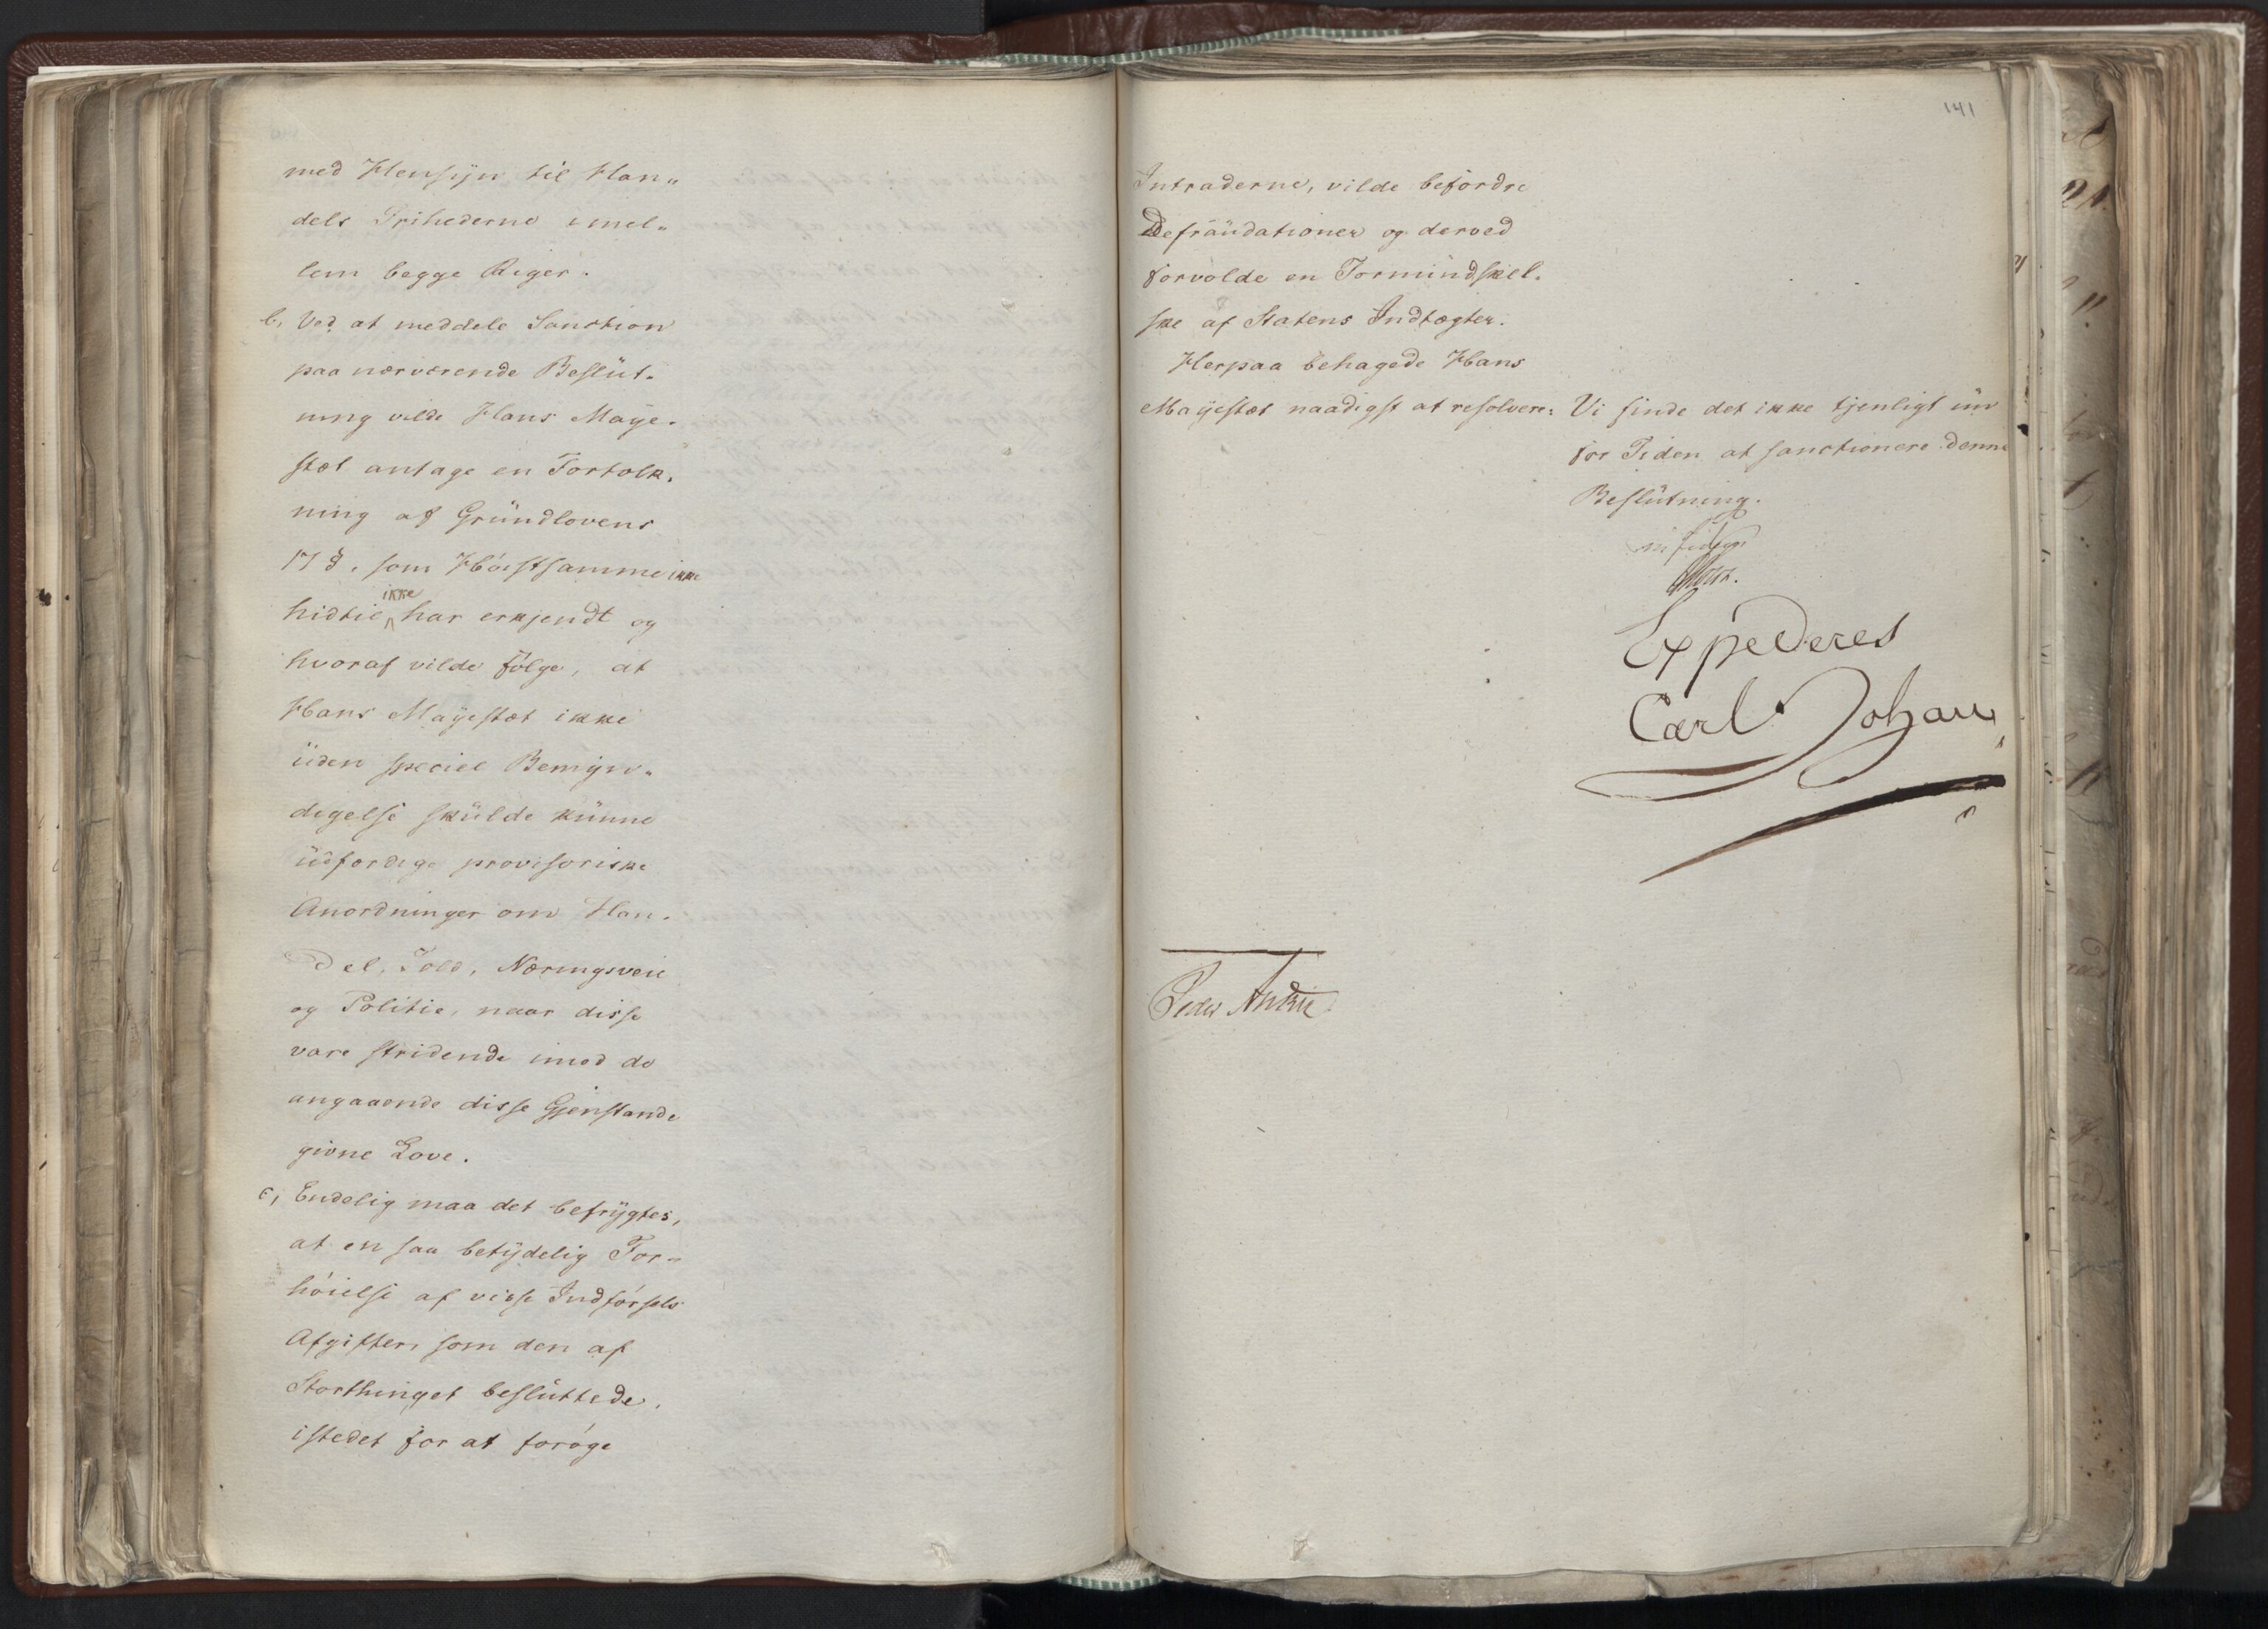 med Hensÿn til Han„
dels Frihederne imel„
lem begge Riger.
b, Ved at meddele Sanction
paa nærværende Beslut„
ning vilde Hans Maye„
stæt antage en Fortolk„
ning af Grundlovens
17 §. som Høistsamme ikke
hidtil ikke har erkjendt og
hvoraf vilde følge, at
Hans Mayestæt ikke
uden speciel Bemÿn„
digelse skulde kunne
udfærdige provisoriske
Anordninger om Han„
del, Told, Næringsveie
og Politie, naar disse
vare stridende imod de
angaaende disse Gjenstande
givne Love.
c, Endelig maa det befrÿgtes,
at en saa betÿdelig For„
høielse af visse Indførsels
Afgifter, som den af
Storthinget besluttede,
istedet for at forøge
141
Intraderne, vilde befordre
Defraudationer og derved
forvolde en Formindskel„
ske af Statens Indtægter.
Herpaa behagede Hans
Mayestæt naadigst at resolvere:
Vi finde det ikke tjenligt nu
for Tiden at sanctionere denne
Beslutning.
Expederes
Carl Johan
Peder Anker